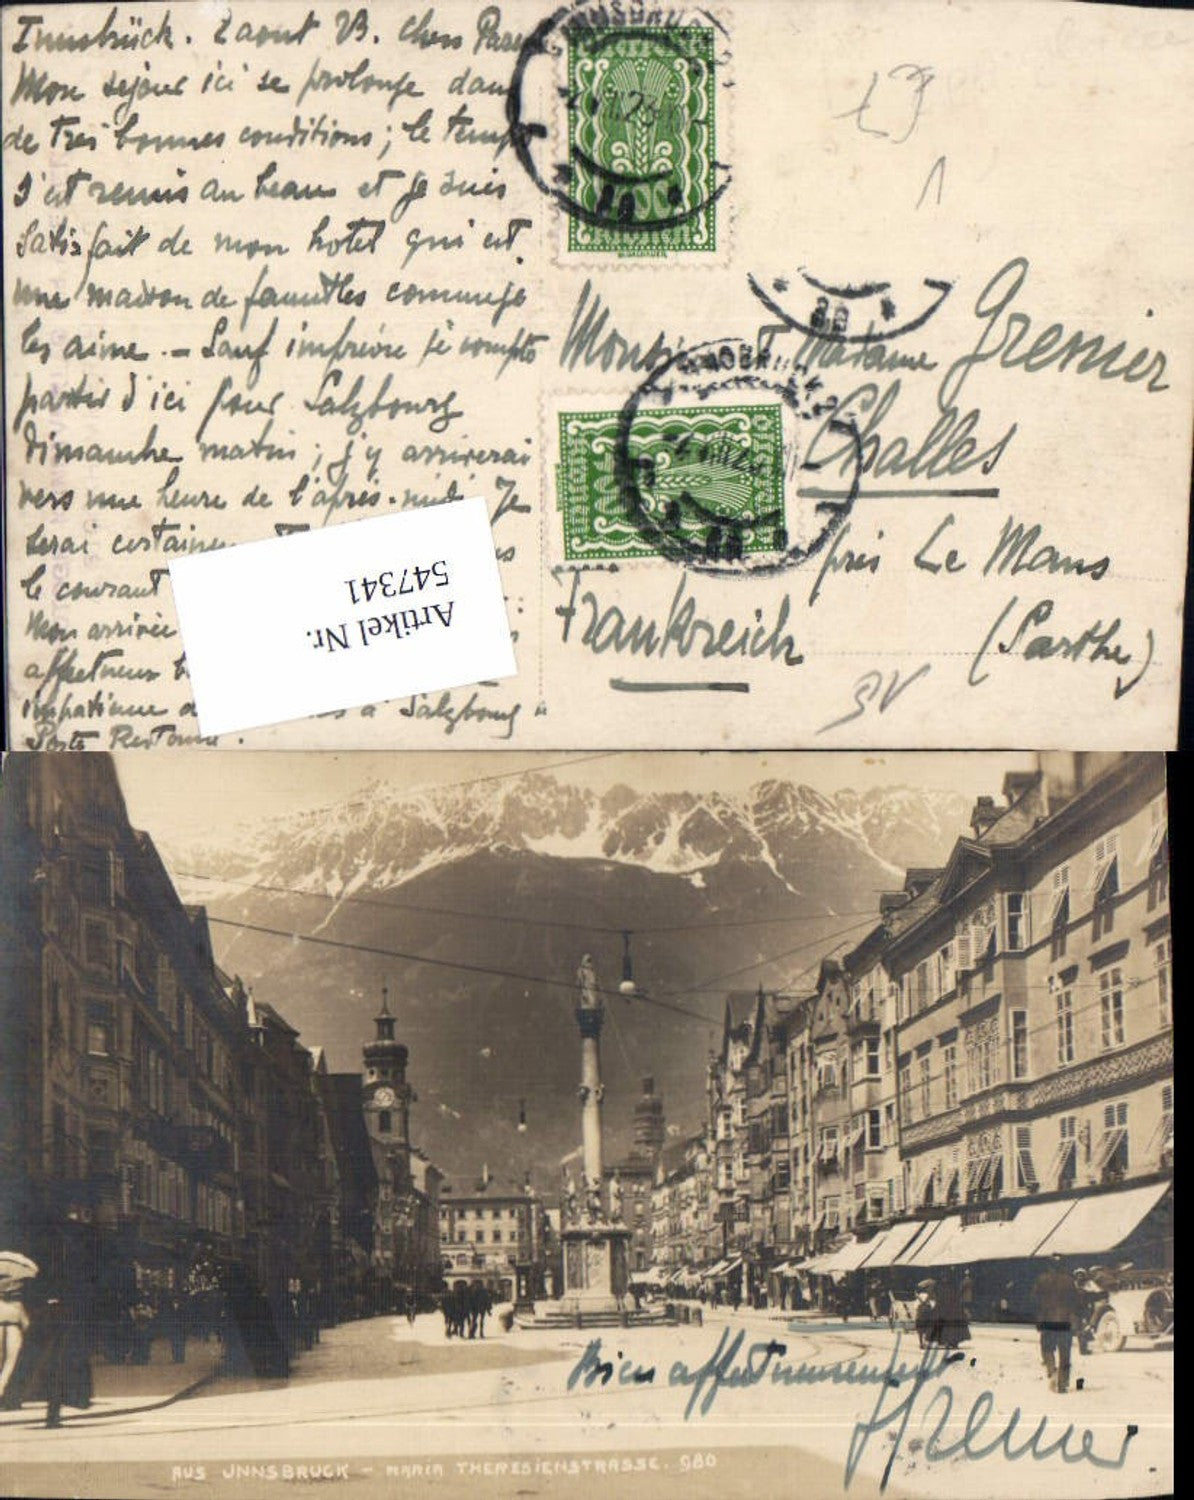 Innsbrück. 2 aout 23. Chers Paren
Mon sejour ici se prolonge dans
de Tres bonnes conditions; le temps
s'est remis au beau et je suis
Satisfait de mon hotel qui est
une maison de familles comme je
les aime. - Sauf imprévu je compte
partir d'ici pour Salzbourg
Dimanche matin; j'y arriverai
vers une heure de l'après-midi. Je
serai
le courant
Mon arrivée
affectueux
impatience à Salzbourg
Poste Restante.
Artikel Nr.
547341
Monsieur et Madame Grenier
Challes
près Le Mans
(Sarthe)
Frankreich
Bien affectueusement.
Grenier
AUS INNSBRUCK - MARIA THERESIENSTRASSE. 980